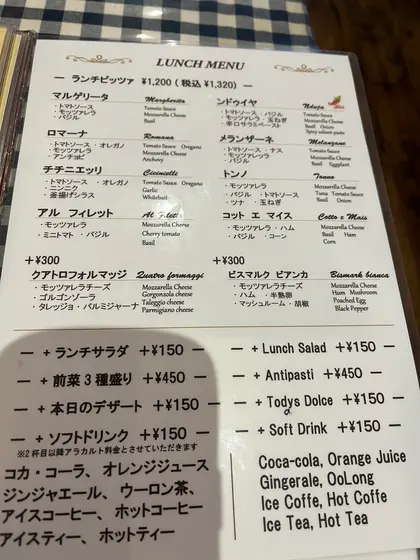 LUNCH MENU
— ランチピッツァ ¥1,200 ( 税込 ¥1,320) —
マルゲリータ Margherita
・トマトソース Tomato Sauce
・モッツァレラ Mozzarella Cheese
・バジル Basil
ロマーナ Romana
・トマトソース ・オレガノ Tomato Sauce Oregano
・モッツァレラ Mozzarella Cheese
・アンチョビ Anchovy
チチニエッリ Cicinielli
・トマトソース ・オレガノ Tomato Sauce Oregano
・ニンニク Garlic
・釜揚げシラス Whitebait
アル フィレット Al Filetto
・モッツァレラ Mozzarella Cheese
・ミニトマト ・バジル Cherry tomato
Basil
+¥300
クアトロフォルマッジ Quatro formaggi
・モッツァレラチーズ Mozzarella Cheese
・ゴルゴンゾーラ Gorgonzola cheese
・タレッジョ ・パルミジャーナ Taleggio cheese
Parmigiano cheese
ンドゥイヤ Nduja
・トマトソース バジル Tomato Sauce
・モッツァレラ ・玉ねぎ Mozzarella Cheese
・辛口サラミペースト Basil Onion
Spicy salami paste
メランザーネ Melanzane
・トマトソース ・ナス Tomato Sauce
・モッツァレッラ Mozzarella Cheese
・バジル Basil Eggplant
トンノ Tonno
・モッツァレラ Mozzarella Cheese
・バジル ・トマトソース Basil Tomato Sauce
・ツナ ・玉ねぎ Tuna Onion
コット エ マイス Cotto e Mais
・モッツァレラ ・ハム Mozzarella Cheese
・バジル ・コーン Basil Ham
Corn
+¥300
ビスマルク ビアンカ Bismark bianca
・モッツァレラチーズ Mozzarella Cheese
・ハム ・半熟卵 Ham Mushroom
・マッシュルーム ・胡椒 Poached Egg
Black Pepper
— + ランチサラダ +¥150 —
— + 前菜3種盛り +¥450 —
— + 本日のデザート +¥150 —
— + ソフトドリンク +¥150 —
※2杯目以降アラカルト料金とさせていただきます
コカ・コーラ、オレンジジュース
ジンジャエール、ウーロン茶、
アイスコーヒー、ホットコーヒー
アイスティー、ホットティー
— + Lunch Salad +¥150 —
— + Antipasti +¥450 —
— + Todys Dolce +¥150 —
a
— + Soft Drink +¥150 —
Coca-cola, Orange Juice
Gingerale, OoLong
Ice Coffe, Hot Coffe
Ice Tea, Hot Tea